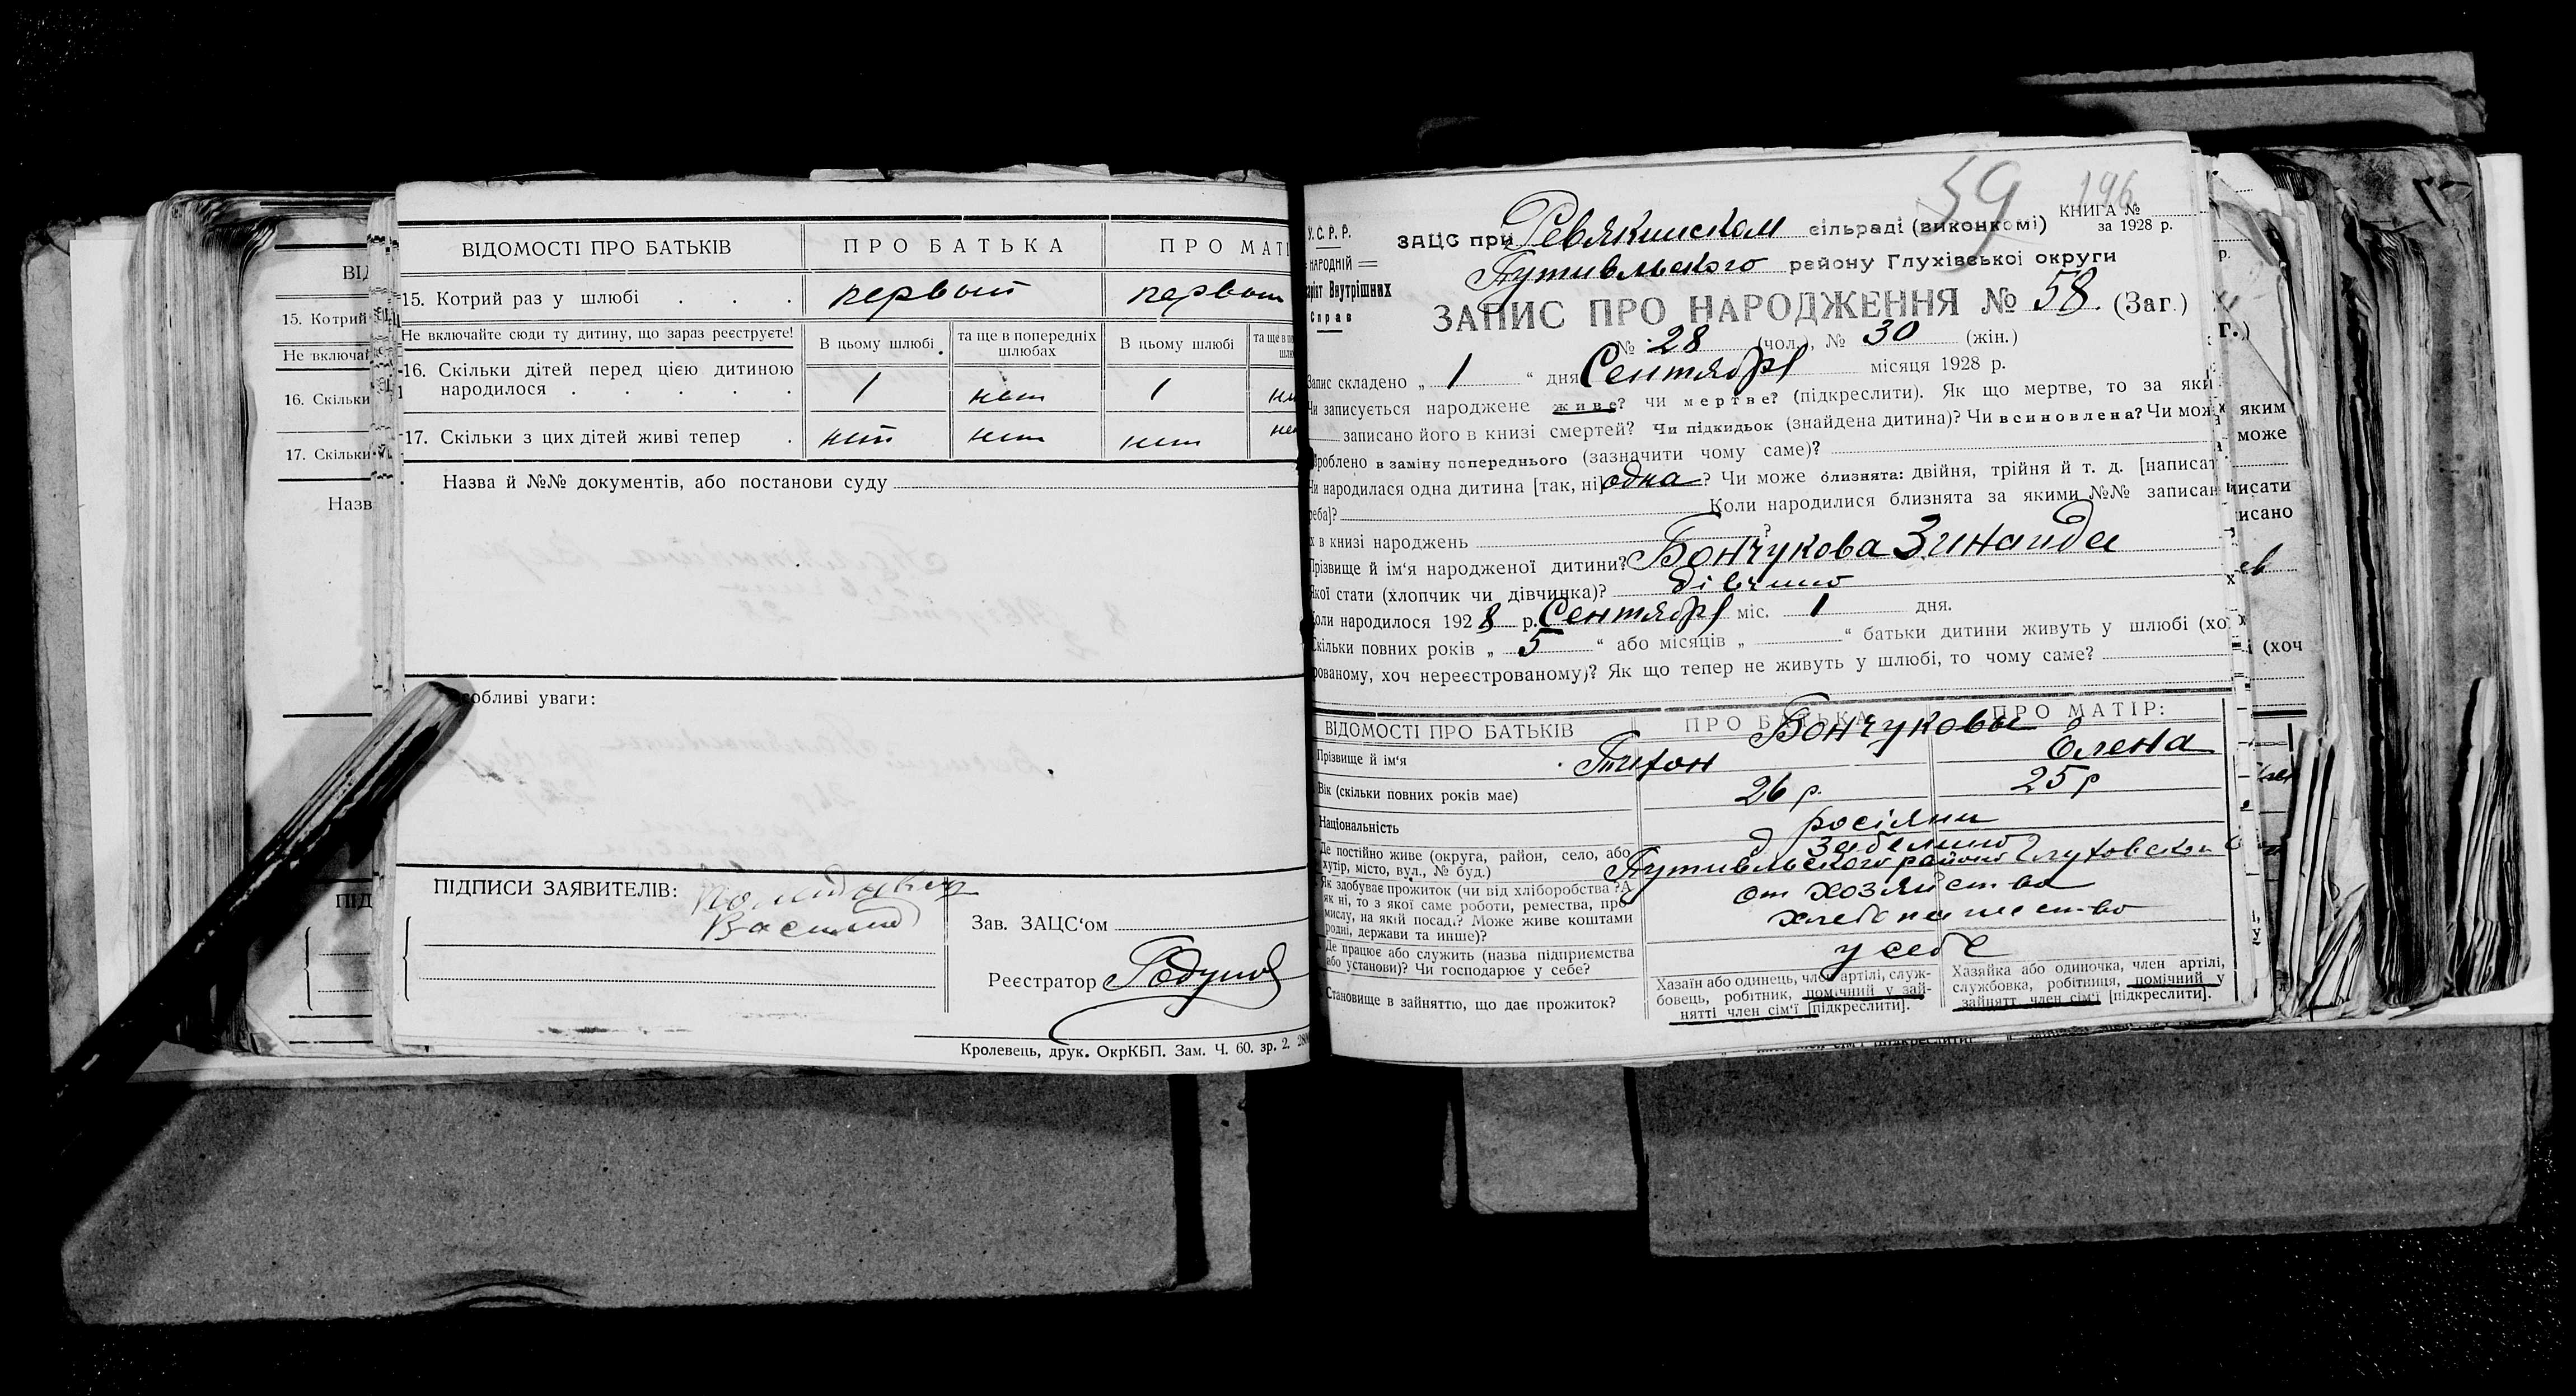 ВІДОМОСТІ ПРО БАТЬКІВ
ПРО БАТЬКА
ПРО МАТІ
15. Котрий раз у шлюбі . . .
первый
первый
Не включайте сюди ту дитину, що зараз реєструєте!
В цьому шлюбі
та ще в попередніх шлюбах
В цьому шлюбі
16. Скільки дітей перед цією дитиною
народилося . . . . .
1
нет
1
17. Скільки з цих дітей живі тепер .
нет
нет
нет
Назва й №№ документів, або постанови суду
собливі уваги:
ПІДПИСИ ЗАЯВИТЕЛІВ:
Зав. ЗАЦС‘ом
Реєстратор
Кролевець, друк. ОкрКБП. Зам. Ч. 60. зр. 2.
15. Котрий
Не включай
16. Скільки
17. Скільки
Назв
59
196
У.С.Р.Р.
НАРОДНІЙ
Внутрішних
Справ
КНИГА №
за 1928 р.
ЗАЦС при Ревякинском сільраді (виконкомі)
Путивльского району Глухівської округи
ЗАПИС ПРО НАРОДЖЕННЯ № 58. (Заг.)
№ 28 (чол.), № 30 (жін.)
Запис складено „ 1 “ дня Сентября місяця 1928 р.
Чи записується народжене живе? чи мертве? (підкреслити). Як що мертве, то за яки
записано його в книзі смертей? Чи підкидьок (знайдена дитина)? Чи всиновлена? Чи мож
роблено в заміну попереднього (зазначити чому саме)?
Чи народилася одна дитина [так, ні] одна ? Чи може близнята: двійня, трійня й т. д. [написат
реба]? Коли народилися близнята за якими №№ записан
х в книзі народжень ?
Прізвище й ім‘я народженої дитини? Бончукова Зинаида
Якої стати (хлопчик чи дівчинка)?
Коли народилося 1928 р. Сентября міс. 1 дня.
Скільки повних років „ 5 “ або місяців „ “ батьки дитини живуть у шлюбі (хо
рованому, хоч нереєстрованому)? Як що тепер не живуть у шлюбі, то чому саме?
ВІДОМОСТІ ПРО БАТЬКІВ
ПРО БАТЬКА
ПРО МАТІР:
Бончуковы
Прізвище й ім‘я
Тихон
Елена
Вік (скільки повних років має)
26 р.
25 р
Національність
росіяни
Де постійно живе (округа, район, село, або
хутір, місто, вул., № буд.)
Путивльского
Як здобуває прожиток (чи від хліборобства? А
як ні, то з якої саме роботи, ремества, про-
мислу, на якій посаді? Може живе коштами
родні, держави та инше)?
от хозяйства
хлебопашество
Де працює або служить (назва підприємства
або установи)? Чи господарює у себе?
у себе
Становище в зайняттю, що дає прожиток?
Хазаїн або одинець, член артілі, служ-
бовець, робітник, помічний у зай-
нятті член сім‘ї [підкреслити].
Хазяйка або одиночка, член артілі,
службовка, робітниця, помічний у
зайнятт член сім‘ї [підкреслити].
яким
може
писати
исано
(хоч